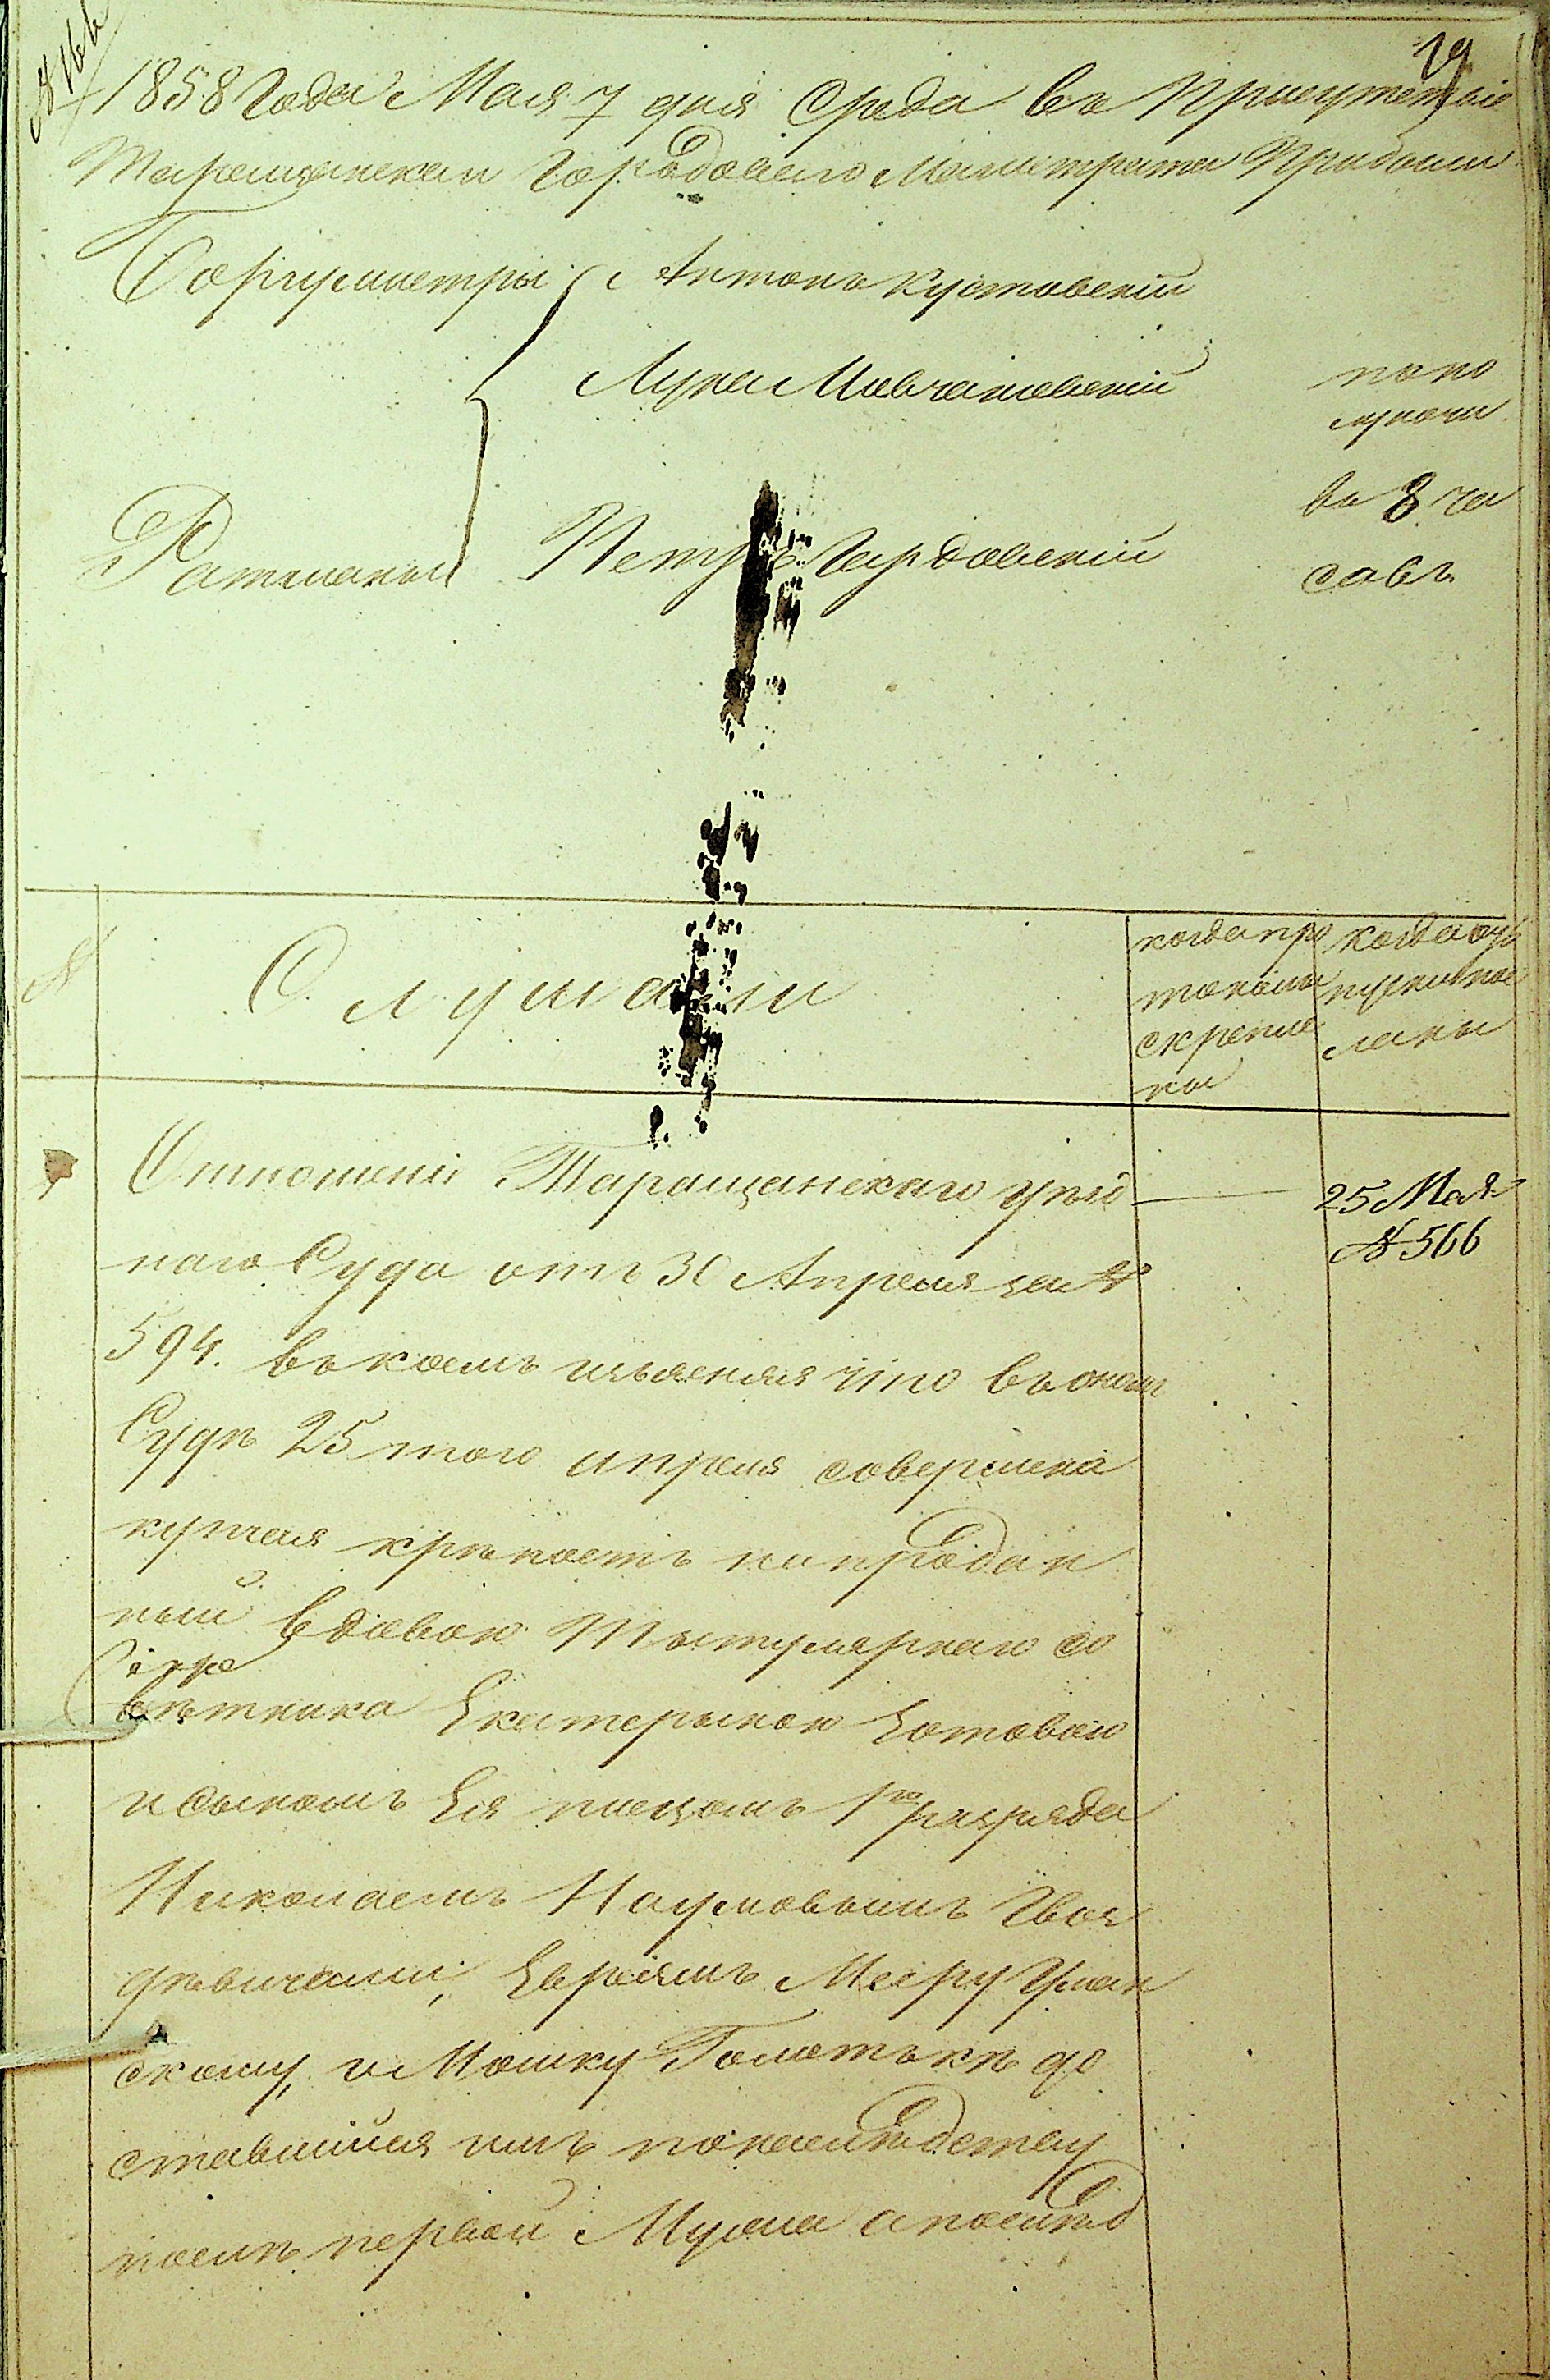 19
№ 166
1858 Года Мая 7 дня Среда въ Присутствіе
Таращанскаи Городоваго Магистрата Прибыли
Боргурмистры Антонъ Кустовскій
Лука Мовчановскій
попо
луночи
въ 8 ча
совъ
Ратманы Петръ Гардовскій
№
Слушали
когда про
токолы
скрепле
ны
когда от
пуски пос
ланы
Отношеніе Таращанскаго уѣзд
наго Суда отъ 30 Апреля за №
594. въ коемъ изьясняя что въ ономъ
Судѣ 25 того апреля совершена
купчая крѣпость на продан
ный вдовою Тытулярнаго со
вѣтника Екатерыною Зотовою
и сыномъ Ея писцомъ 1го разряда
Николаемъ Наумовымъ Гвоз
дѣвичами, Евреямъ Меиру Уман
скому, и Мошку Голотъкѣ до
ставшійся имъ по наслѣдству
послѣ первой Мужа а послѣд
25 Мая
№ 566